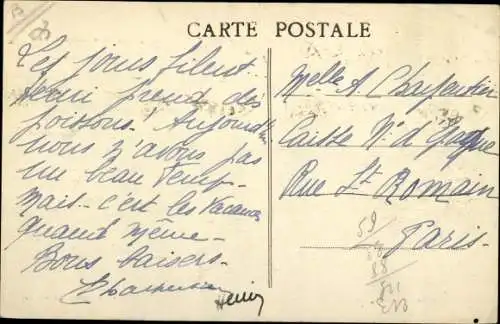 CARTE POSTALE
Les jours filent
Henri prend des
poissons. Aujourd'hui
nous n'avons pas
un beau temp-
mais c'est les vacances
quand même-
Bons baisers-
Henri
Melle A. Charpentier
Caisse N. d'Epargne
Rue St Romain
Paris-
59
88